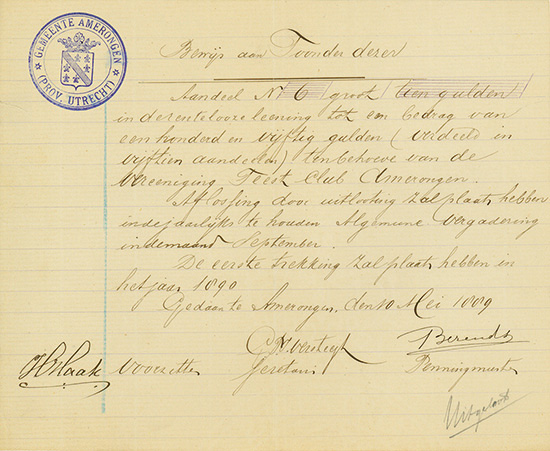 GEMEENTE AMERONGEN
(PROV. UTRECHT)
Bewijs aan Toonder dezer
Aandeel No 6 groot tien gulden
in de rentelooze leening tot een bedrag van
een honderd en vijftig gulden (verdeeld in
vijftien aandeelen) ten behoeve van de
Vereeniging Feest Club Amerongen.
Aflossing door uitlooting zal plaats hebben
in de jaarlijks te houden Algemene Vergadering
in de maand September.
De eerste trekking zal plaats hebben in
het jaar 1890
Gedaan te Amerongen, den 10 Mei 1889
Voorzitter
Secretaris
Berends
Penningmeester
Uitgeloot